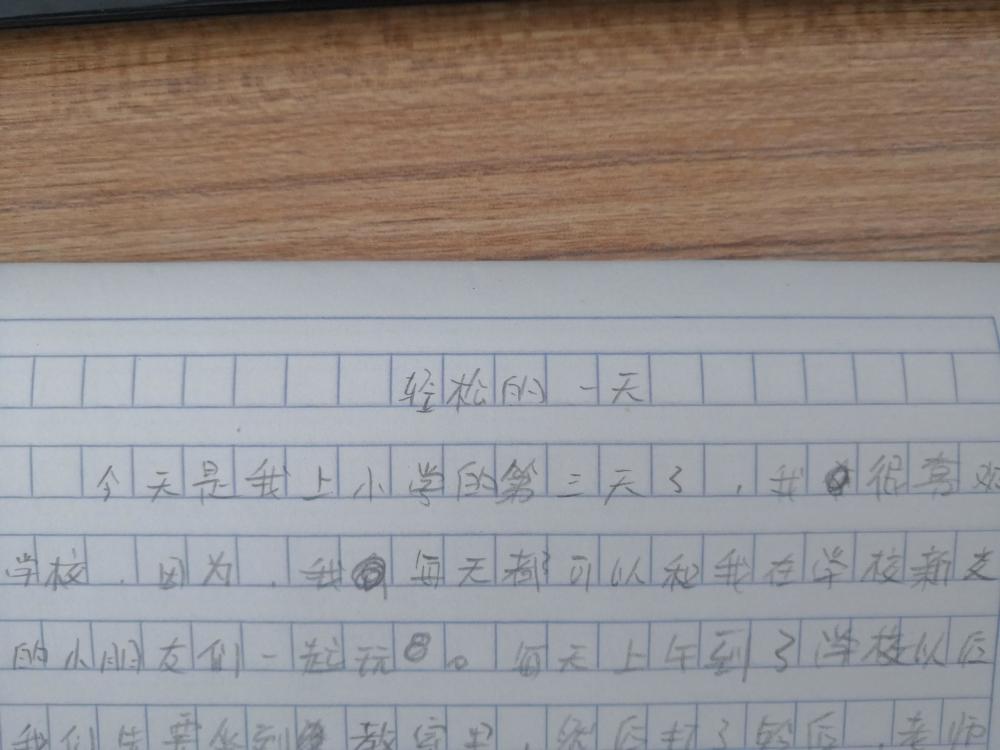 轻松的一天
今天是我上小学的第三天了，我很喜欢
学校，因为，我每天都可以和我在学校新交
的小朋友们一起玩。每天上午到了学校以后
我们先要坐到教室里，然后打了铃后，老师